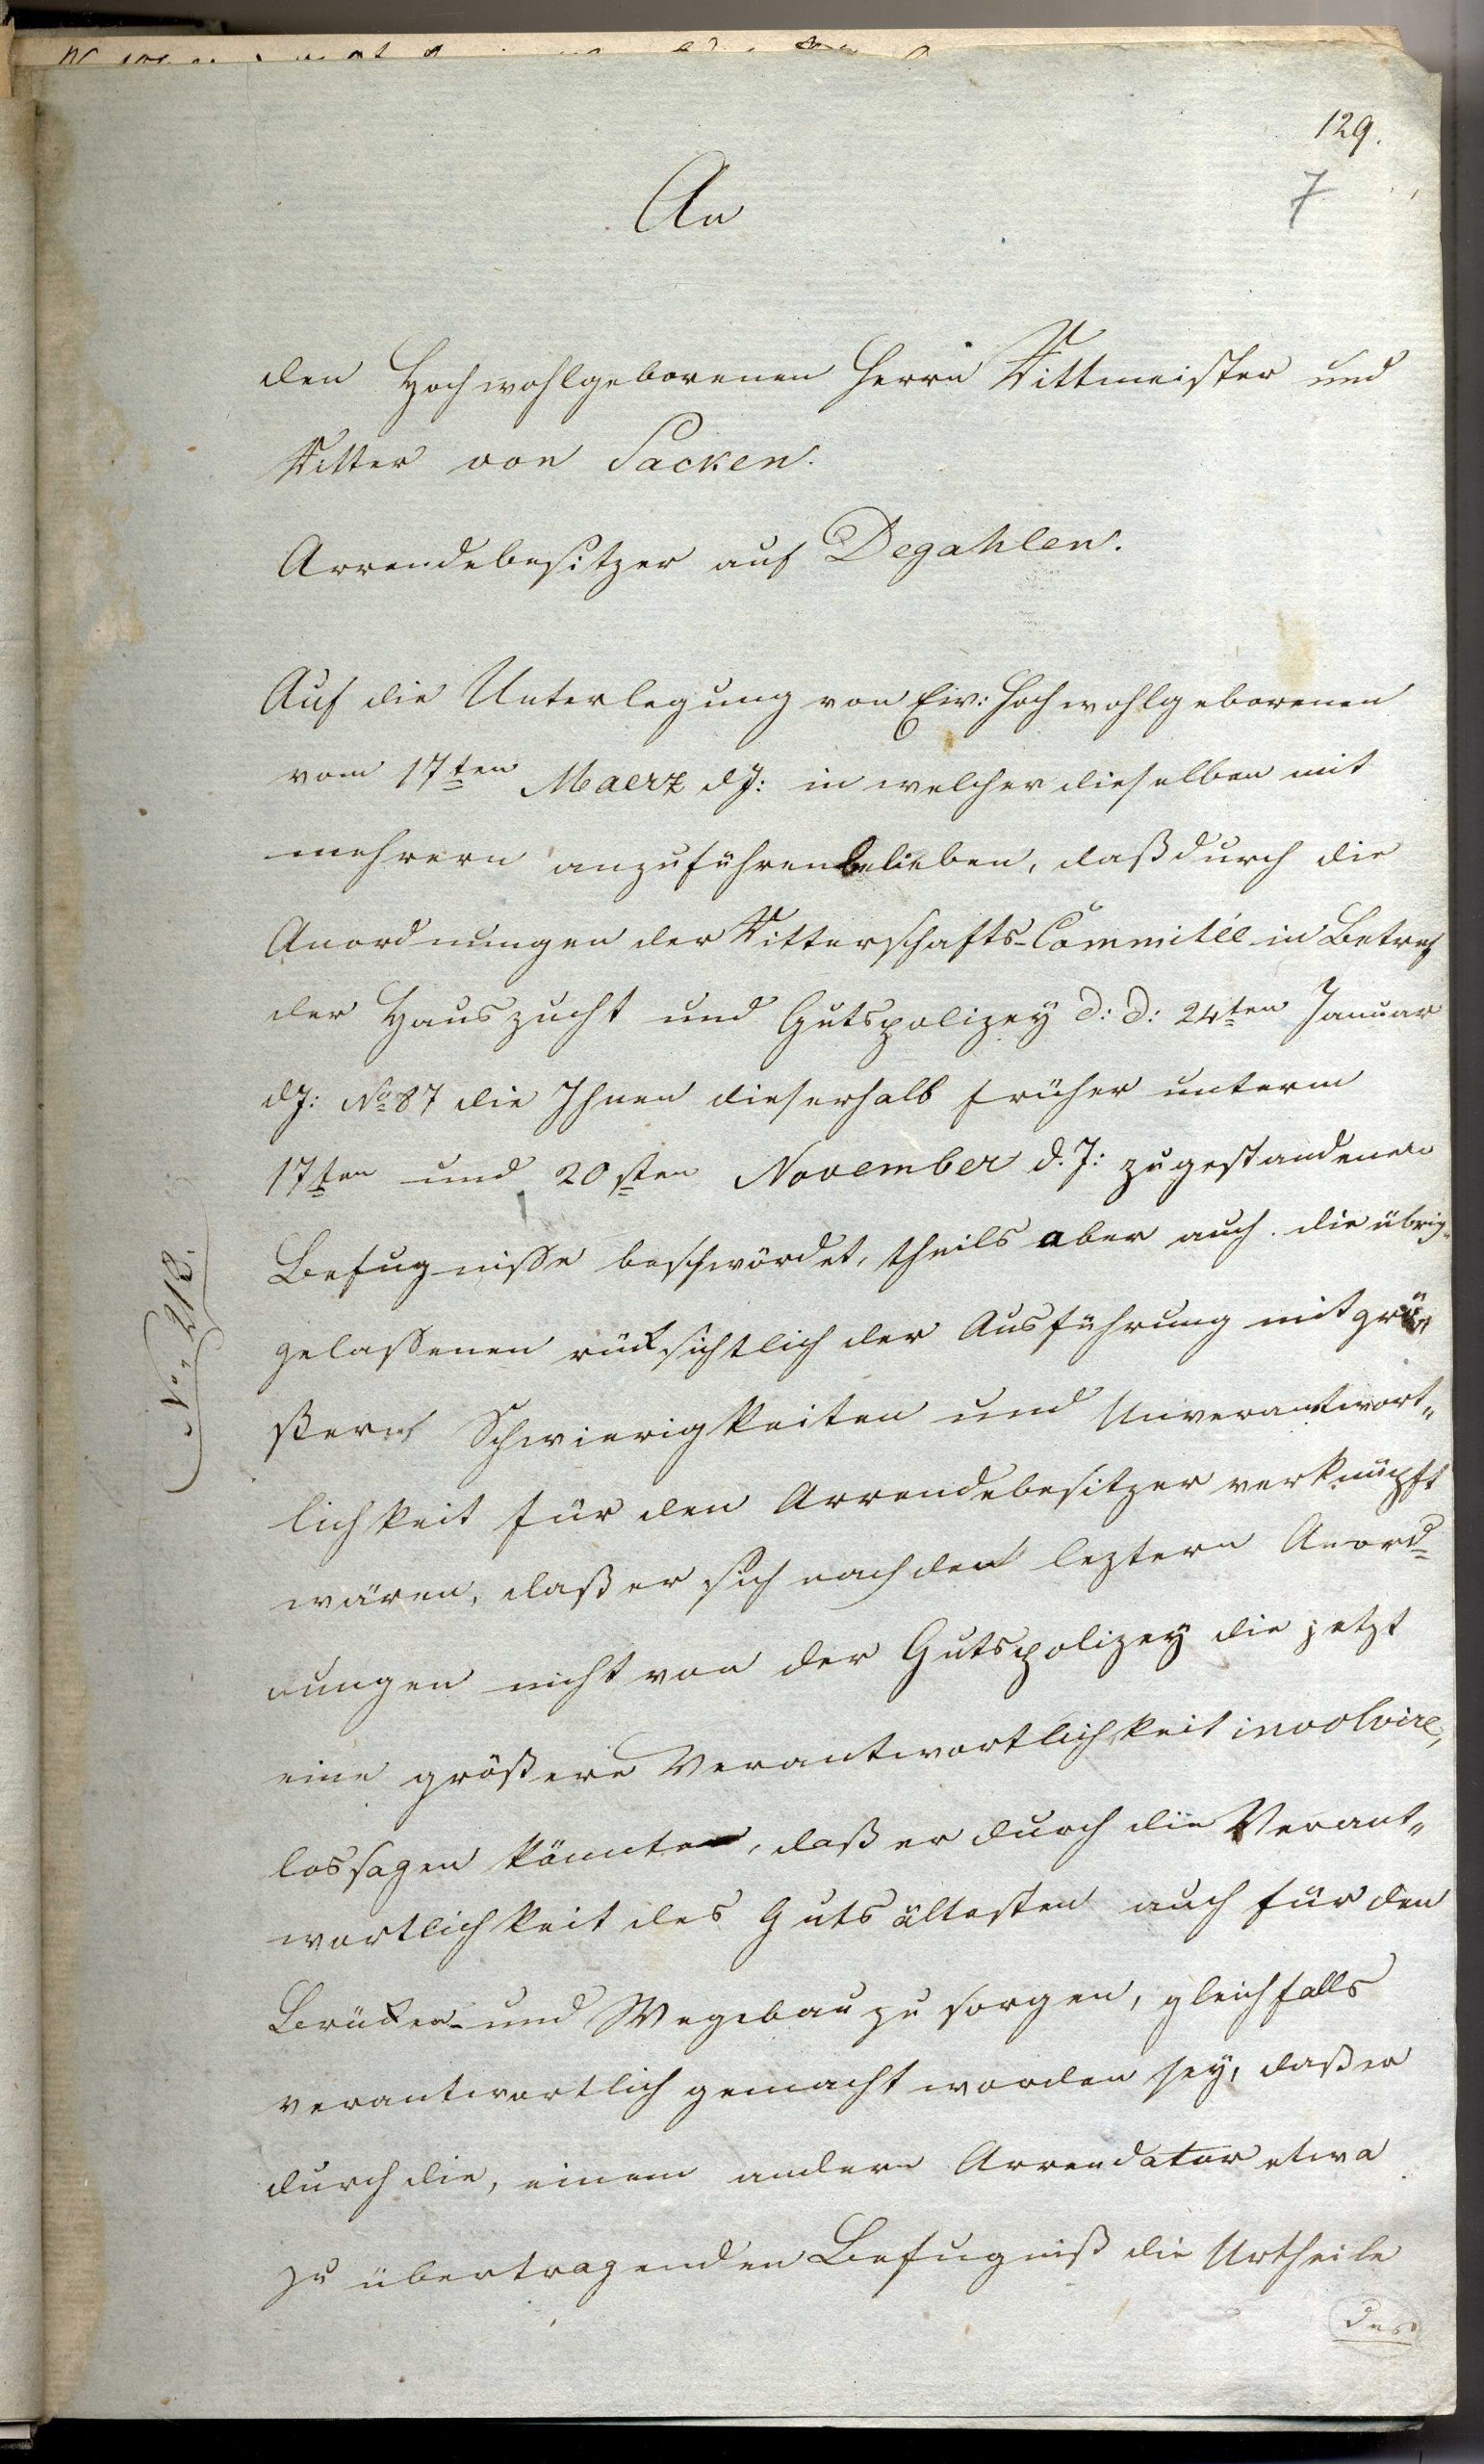 129.
7
An
den Hochwohlgeborenen Herrn Rittmeister und
Ritter von Sacken.
Arrendebesitzer auf Degahlen.
Auf die Unterlegung von Ew: Hochwohlgeborenen
vom 17ten Maerz dJ: in welcher dieselben mit
mehrern anzuführen belieben, daß durch die
Anordnungen der Ritterschafts-Committée in Betref
der Hauszucht und Gutspolizey d: d: 24ten Januar
dJ: No 87 die Ihnen dieserhalb früher unterm
17ten und 20sten November d. J: zugestandenen
Befugnisse theils aber auch die übrig„
gelassenen rüksichtlich der Ausführung mit grö„
ßern Schwierigkeiten und Unverantwort„
lichkeit für den Arrendebesitzer verknüpft
wären, daß er sich nach den leztern Anord=
nungen nicht von der Gutspolizey die jetzt
eine größere Verantwortlichkeit involvire,
lossagen könnte, daß er durch die Verant„
wortlichkeit des Gutsältesten auch für den
Brüken- und Wegebau zu sorgen, gleichfalls
verantwortlich gemacht worden sey, daß er
durch die, einem andern Arrendator etwa
zu übertragenden Befugniß die Urtheile
des
No 218.